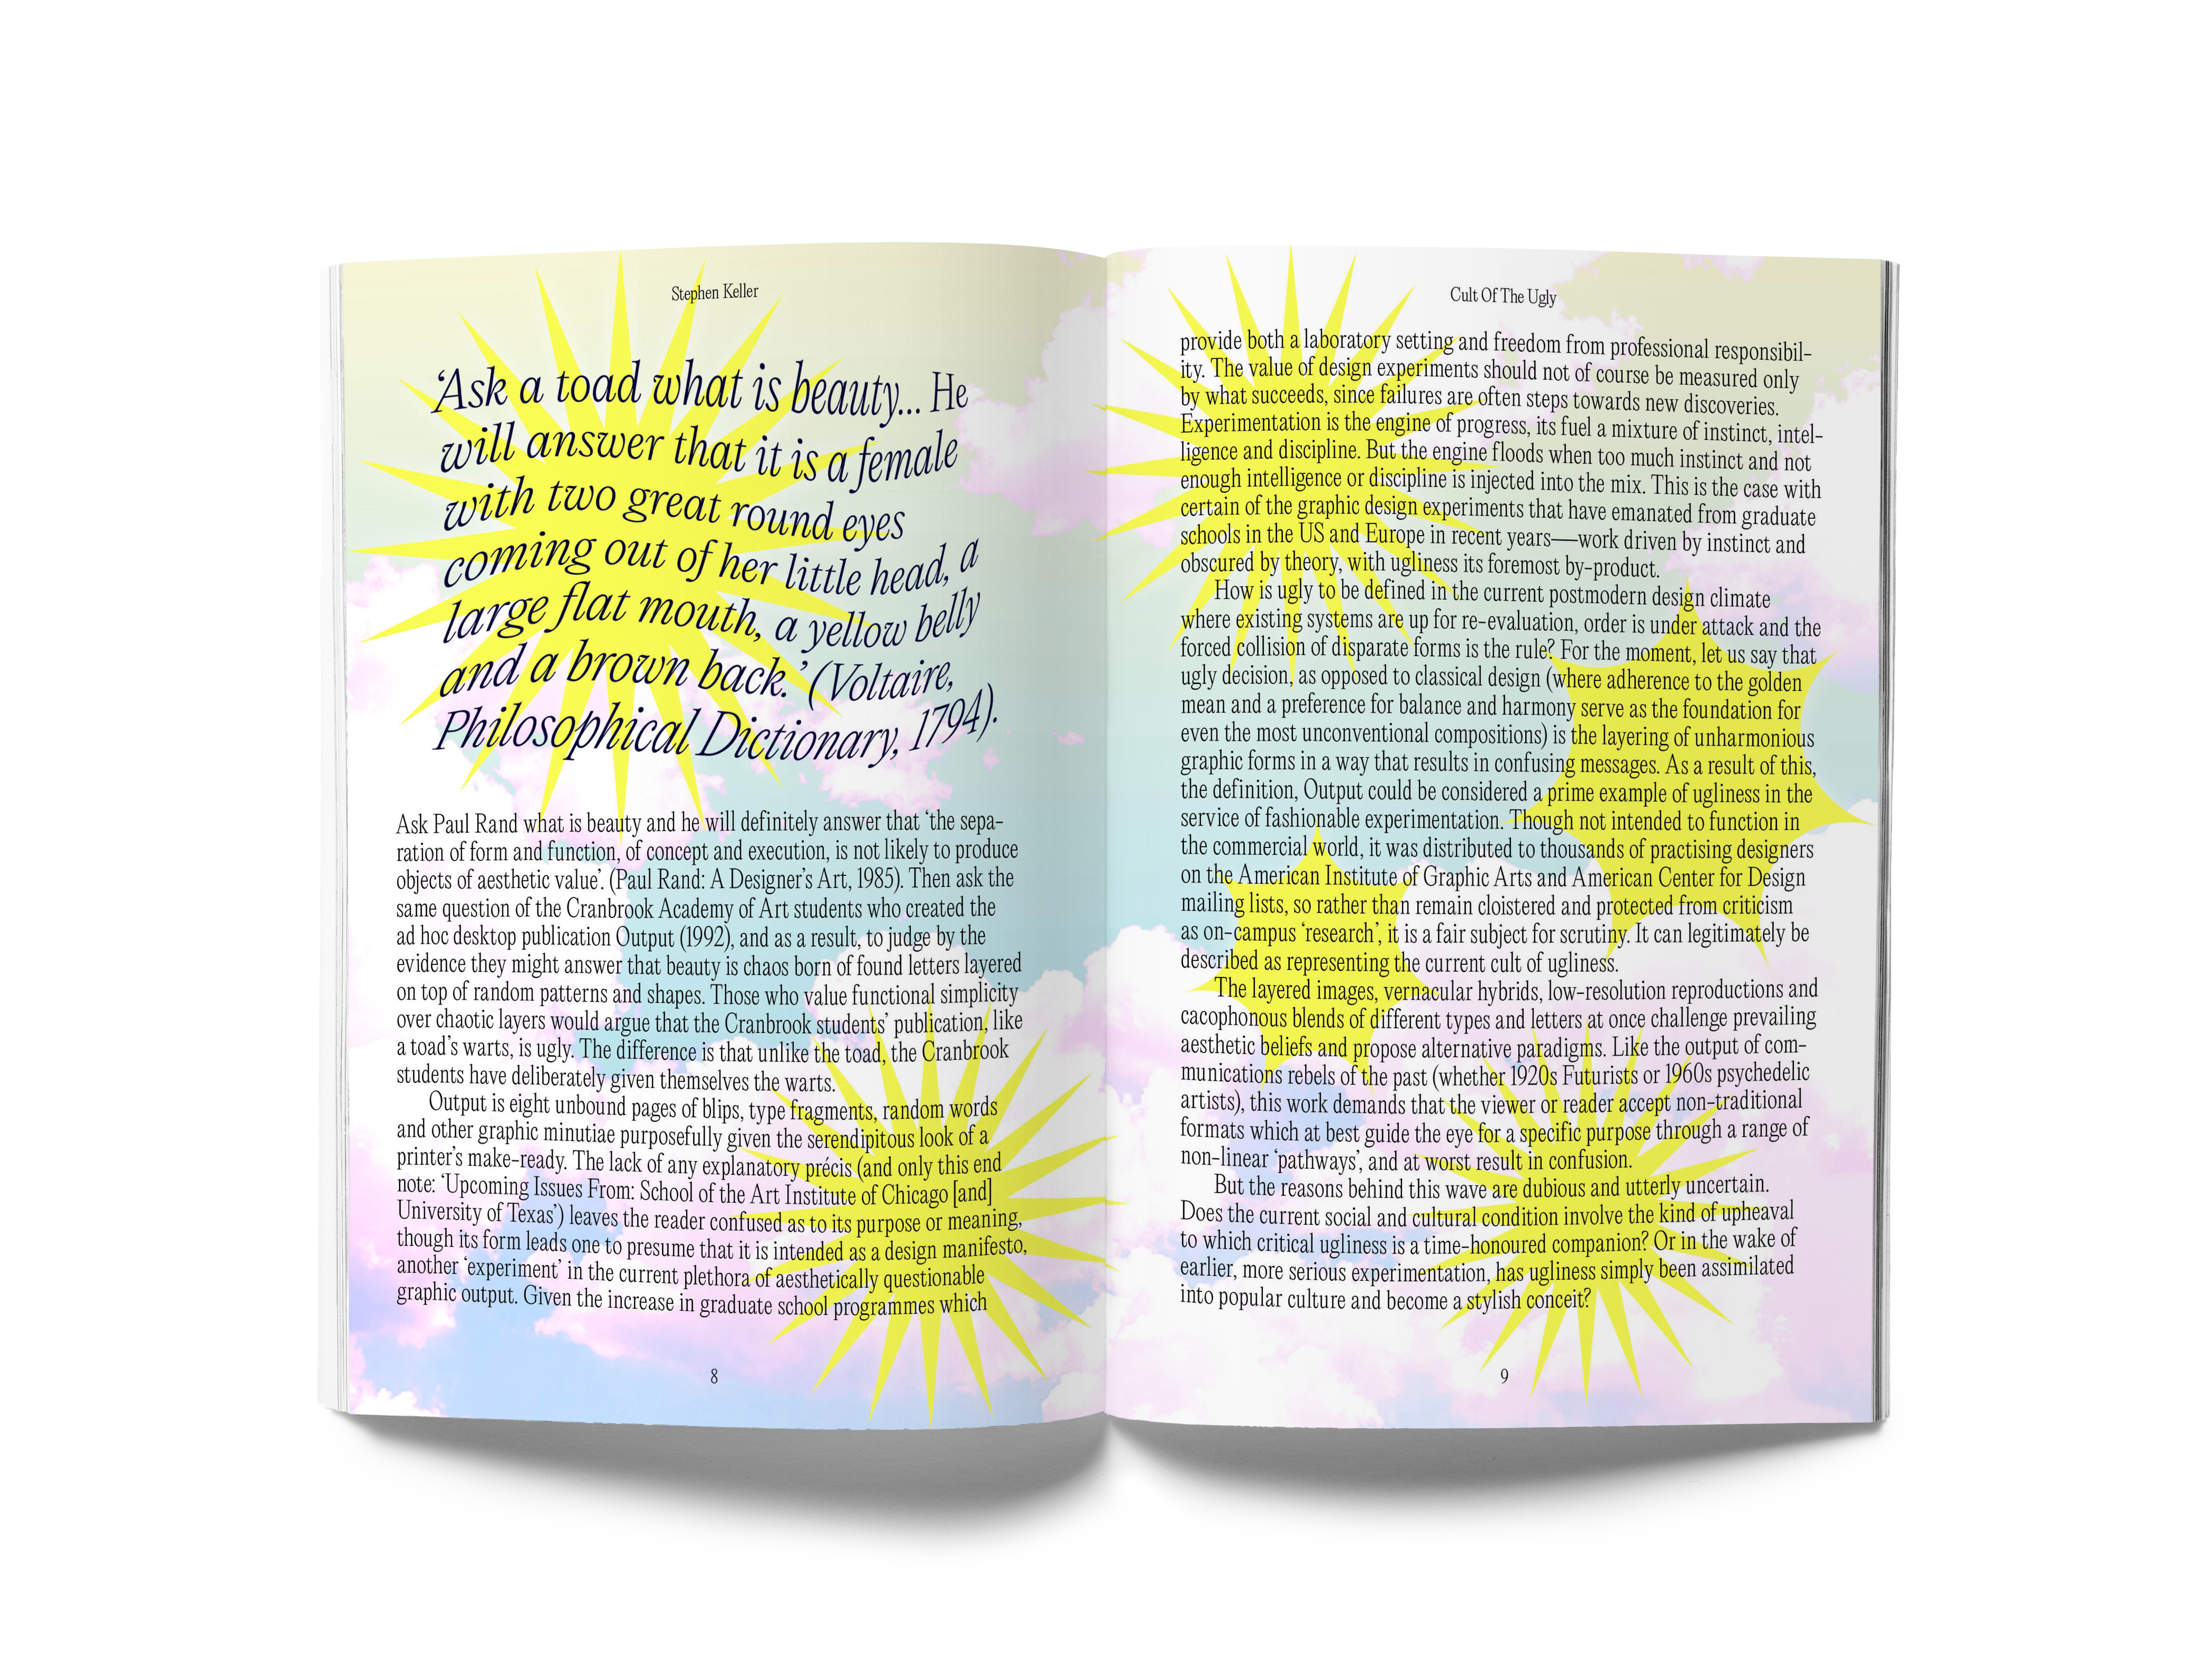 Stephen Keller
‘Ask a toad what is beauty... He
will answer that it is a female
with two great round eyes
coming out of her little head, a
large flat mouth, a yellow belly
and a brown back.’ (Voltaire,
Philosophical Dictionary, 1794).
Ask Paul Rand what is beauty and he will definitely answer that ‘the sepa-
ration of form and function, of concept and execution, is not likely to produce
objects of aesthetic value’. (Paul Rand: A Designer’s Art, 1985). Then ask the
same question of the Cranbrook Academy of Art students who created the
ad hoc desktop publication Output (1992), and as a result, to judge by the
evidence they might answer that beauty is chaos born of found letters layered
on top of random patterns and shapes. Those who value functional simplicity
over chaotic layers would argue that the Cranbrook students’ publication, like
a toad’s warts, is ugly. The difference is that unlike the toad, the Cranbrook
students have deliberately given themselves the warts.
Output is eight unbound pages of blips, type fragments, random words
and other graphic minutiae purposefully given the serendipitous look of a
printer’s make-ready. The lack of any explanatory précis (and only this end
note: ‘Upcoming Issues From: School of the Art Institute of Chicago [and]
University of Texas’) leaves the reader confused as to its purpose or meaning,
though its form leads one to presume that it is intended as a design manifesto,
another ‘experiment’ in the current plethora of aesthetically questionable
graphic output. Given the increase in graduate school programmes which
8
Cult Of The Ugly
provide both a laboratory setting and freedom from professional responsibil-
ity. The value of design experiments should not of course be measured only
by what succeeds, since failures are often steps towards new discoveries.
Experimentation is the engine of progress, its fuel a mixture of instinct, intel-
ligence and discipline. But the engine floods when too much instinct and not
enough intelligence or discipline is injected into the mix. This is the case with
certain of the graphic design experiments that have emanated from graduate
schools in the US and Europe in recent years—work driven by instinct and
obscured by theory, with ugliness its foremost by-product.
How is ugly to be defined in the current postmodern design climate
where existing systems are up for re-evaluation, order is under attack and the
forced collision of disparate forms is the rule? For the moment, let us say that
ugly decision, as opposed to classical design (where adherence to the golden
mean and a preference for balance and harmony serve as the foundation for
even the most unconventional compositions) is the layering of unharmonious
graphic forms in a way that results in confusing messages. As a result of this,
the definition, Output could be considered a prime example of ugliness in the
service of fashionable experimentation. Though not intended to function in
the commercial world, it was distributed to thousands of practising designers
on the American Institute of Graphic Arts and American Center for Design
mailing lists, so rather than remain cloistered and protected from criticism
as on-campus ‘research’, it is a fair subject for scrutiny. It can legitimately be
described as representing the current cult of ugliness.
The layered images, vernacular hybrids, low-resolution reproductions and
cacophonous blends of different types and letters at once challenge prevailing
aesthetic beliefs and propose alternative paradigms. Like the output of com-
munications rebels of the past (whether 1920s Futurists or 1960s psychedelic
artists), this work demands that the viewer or reader accept non-traditional
formats which at best guide the eye for a specific purpose through a range of
non-linear ‘pathways’, and at worst result in confusion.
But the reasons behind this wave are dubious and utterly uncertain.
Does the current social and cultural condition involve the kind of upheaval
to which critical ugliness is a time-honoured companion? Or in the wake of
earlier, more serious experimentation, has ugliness simply been assimilated
into popular culture and become a stylish conceit?
9